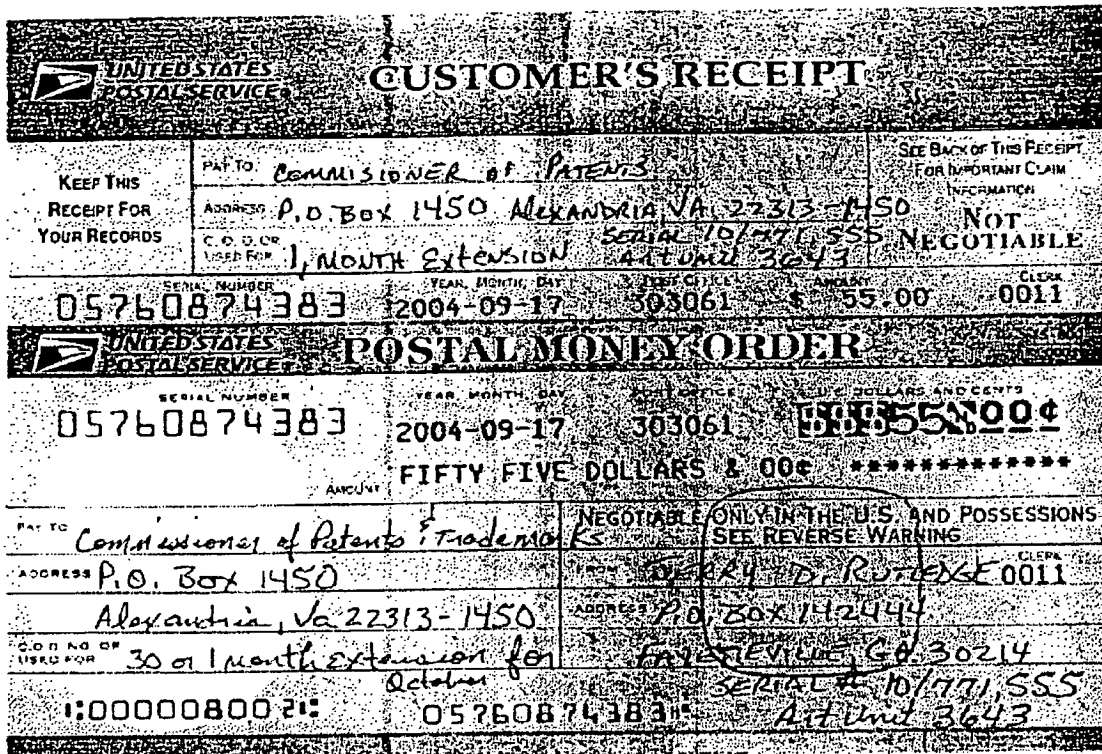 UNITED STATES POSTAL SERVICE
CUSTOMER'S RECEIPT
KEEP THIS RECEIPT FOR YOUR RECORDS
PAY TO COMMISIONER OF PATENTS
ADDRESS P.O. BOX 1450 ALEXANDRIA VA. 22313-1450
C.O.D. OR USED FOR 1, MONTH EXTENSION
SERIAL 10/771,555
ART UNIT 3643
SEE BACK OF THIS RECEIPT
FOR IMPORTANT CLAIM
INFORMATION
NOT
NEGOTIABLE
SERIAL NUMBER YEAR, MONTH, DAY POST OFFICE AMOUNT CLERK
05760874383 2004-09-17 303061 $ 55.00 0011
UNITED STATES POSTAL SERVICE
POSTAL MONEY ORDER
SERIAL NUMBER YEAR, MONTH, DAY POST OFFICE DOLLARS AND CENTS
05760874383 2004-09-17 303061 $$$55 00¢
AMOUNT FIFTY FIVE DOLLARS & 00¢ **************
PAY TO Commissioner of Patents & Trademarks
ADDRESS P.O. Box 1450
Alexandria, Va 22313-1450
C.O.D. NO. OR USED FOR 30 or 1 month extension for
October
NEGOTIABLE ONLY IN THE U.S. AND POSSESSIONS
SEE REVERSE WARNING
FROM D. RUTLEDGE CLERK 0011
ADDRESS P.O. BOX 142444
FAYETTEVILLE, GA. 30214
SERIAL # 10/771,555
Art Unit 3643
000008002 05760874383